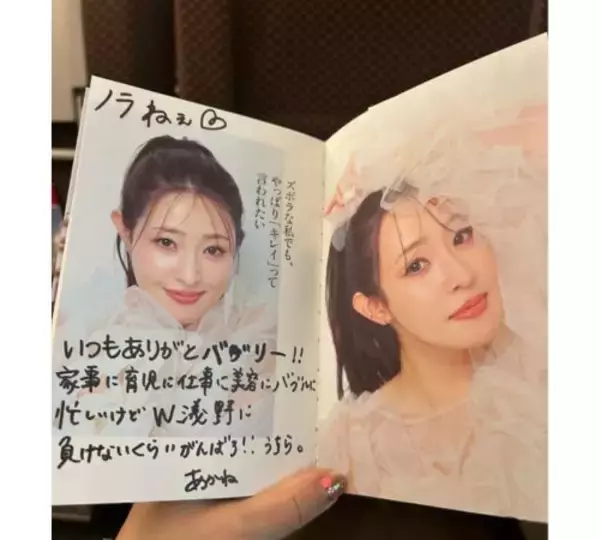 ノラねぇ♡
ズボラな私でも、
やっぱり「キレイ」って
言われたい
いつもありがとバブリー!!
家事に育児に仕事に美容にバブルに
忙しいけど W浅野に
負けないくらいがんばろ!! うちら。
あかね